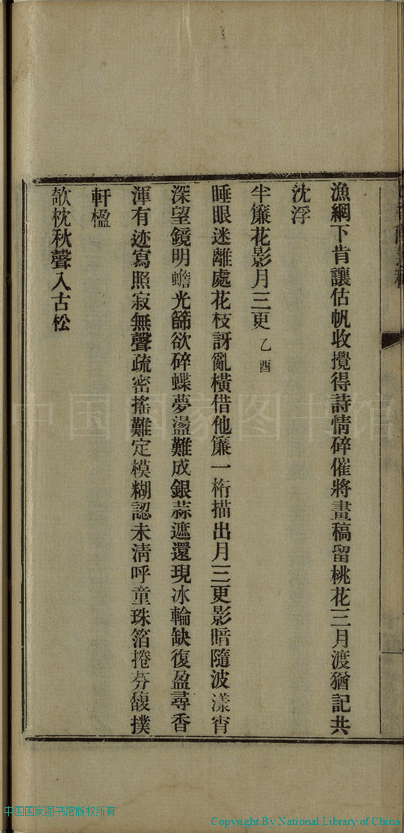 漁網下肯讓估帆收攪得詩情碎催將畫稿留桃花三月渡猶記共
沈浮
半簾花影月三更 乙酉
睡眼迷離處花枝訝亂橫借他簾一桁描出月三更影暗隨波漾宵
深望鏡明蟾光篩欲碎蝶夢盪難成銀蒜遮還現冰輪缺復盈尋香
渾有迹寫照寂無聲疏密搖難定模糊認未清呼童珠箔捲芬馥撲
軒楹
欹枕秋聲入古松
中国国家图书馆
中国国家图书馆版权所有
Copyright By National Library of China